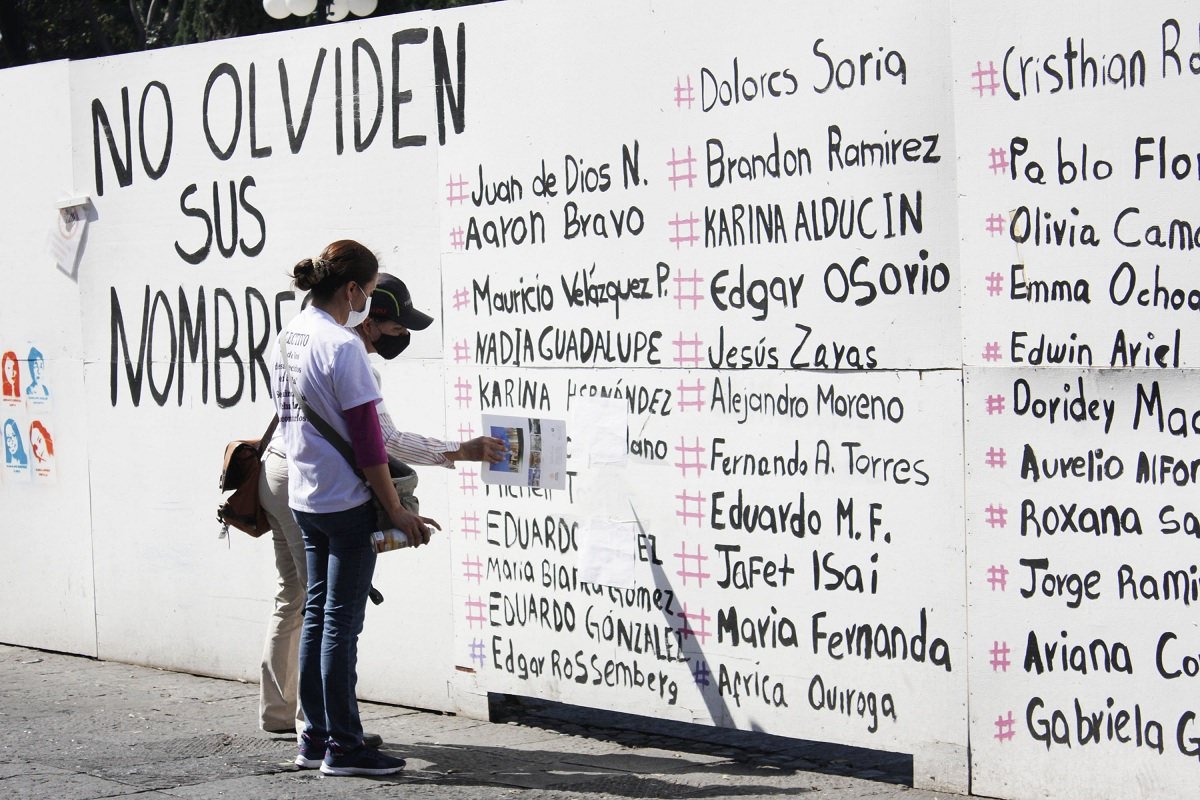 NO OLVIDEN
SUS
NOMBRE
#Juan de Dios N.
#Aaron Bravo
#Mauricio Velázquez P.
#NADIA GUADALUPE
#KARINA HERNÁNDEZ
#
#
#EDUARDO
#Maria Blanka Gomez
#EDUARDO GONZALEZ
#Edgar Rossemberg
#Dolores Soria
#Brandon Ramirez
#KARINA ALDUCIN
#Edgar OSorio
#Jesús Zayas
#Alejandro Moreno
#Fernando A. Torres
#Eduardo M.F.
#Jafet Isai
#Maria Fernanda
#Africa Quiroga
#Cristhian
#Pablo Flor
#Olivia Cam
#Emma Ochoa
#Edwin Ariel
#Doridey Mac
#Aurelio Alfon
#Roxana Sa
#Jorge Rami
#Ariana Co
#Gabriela G